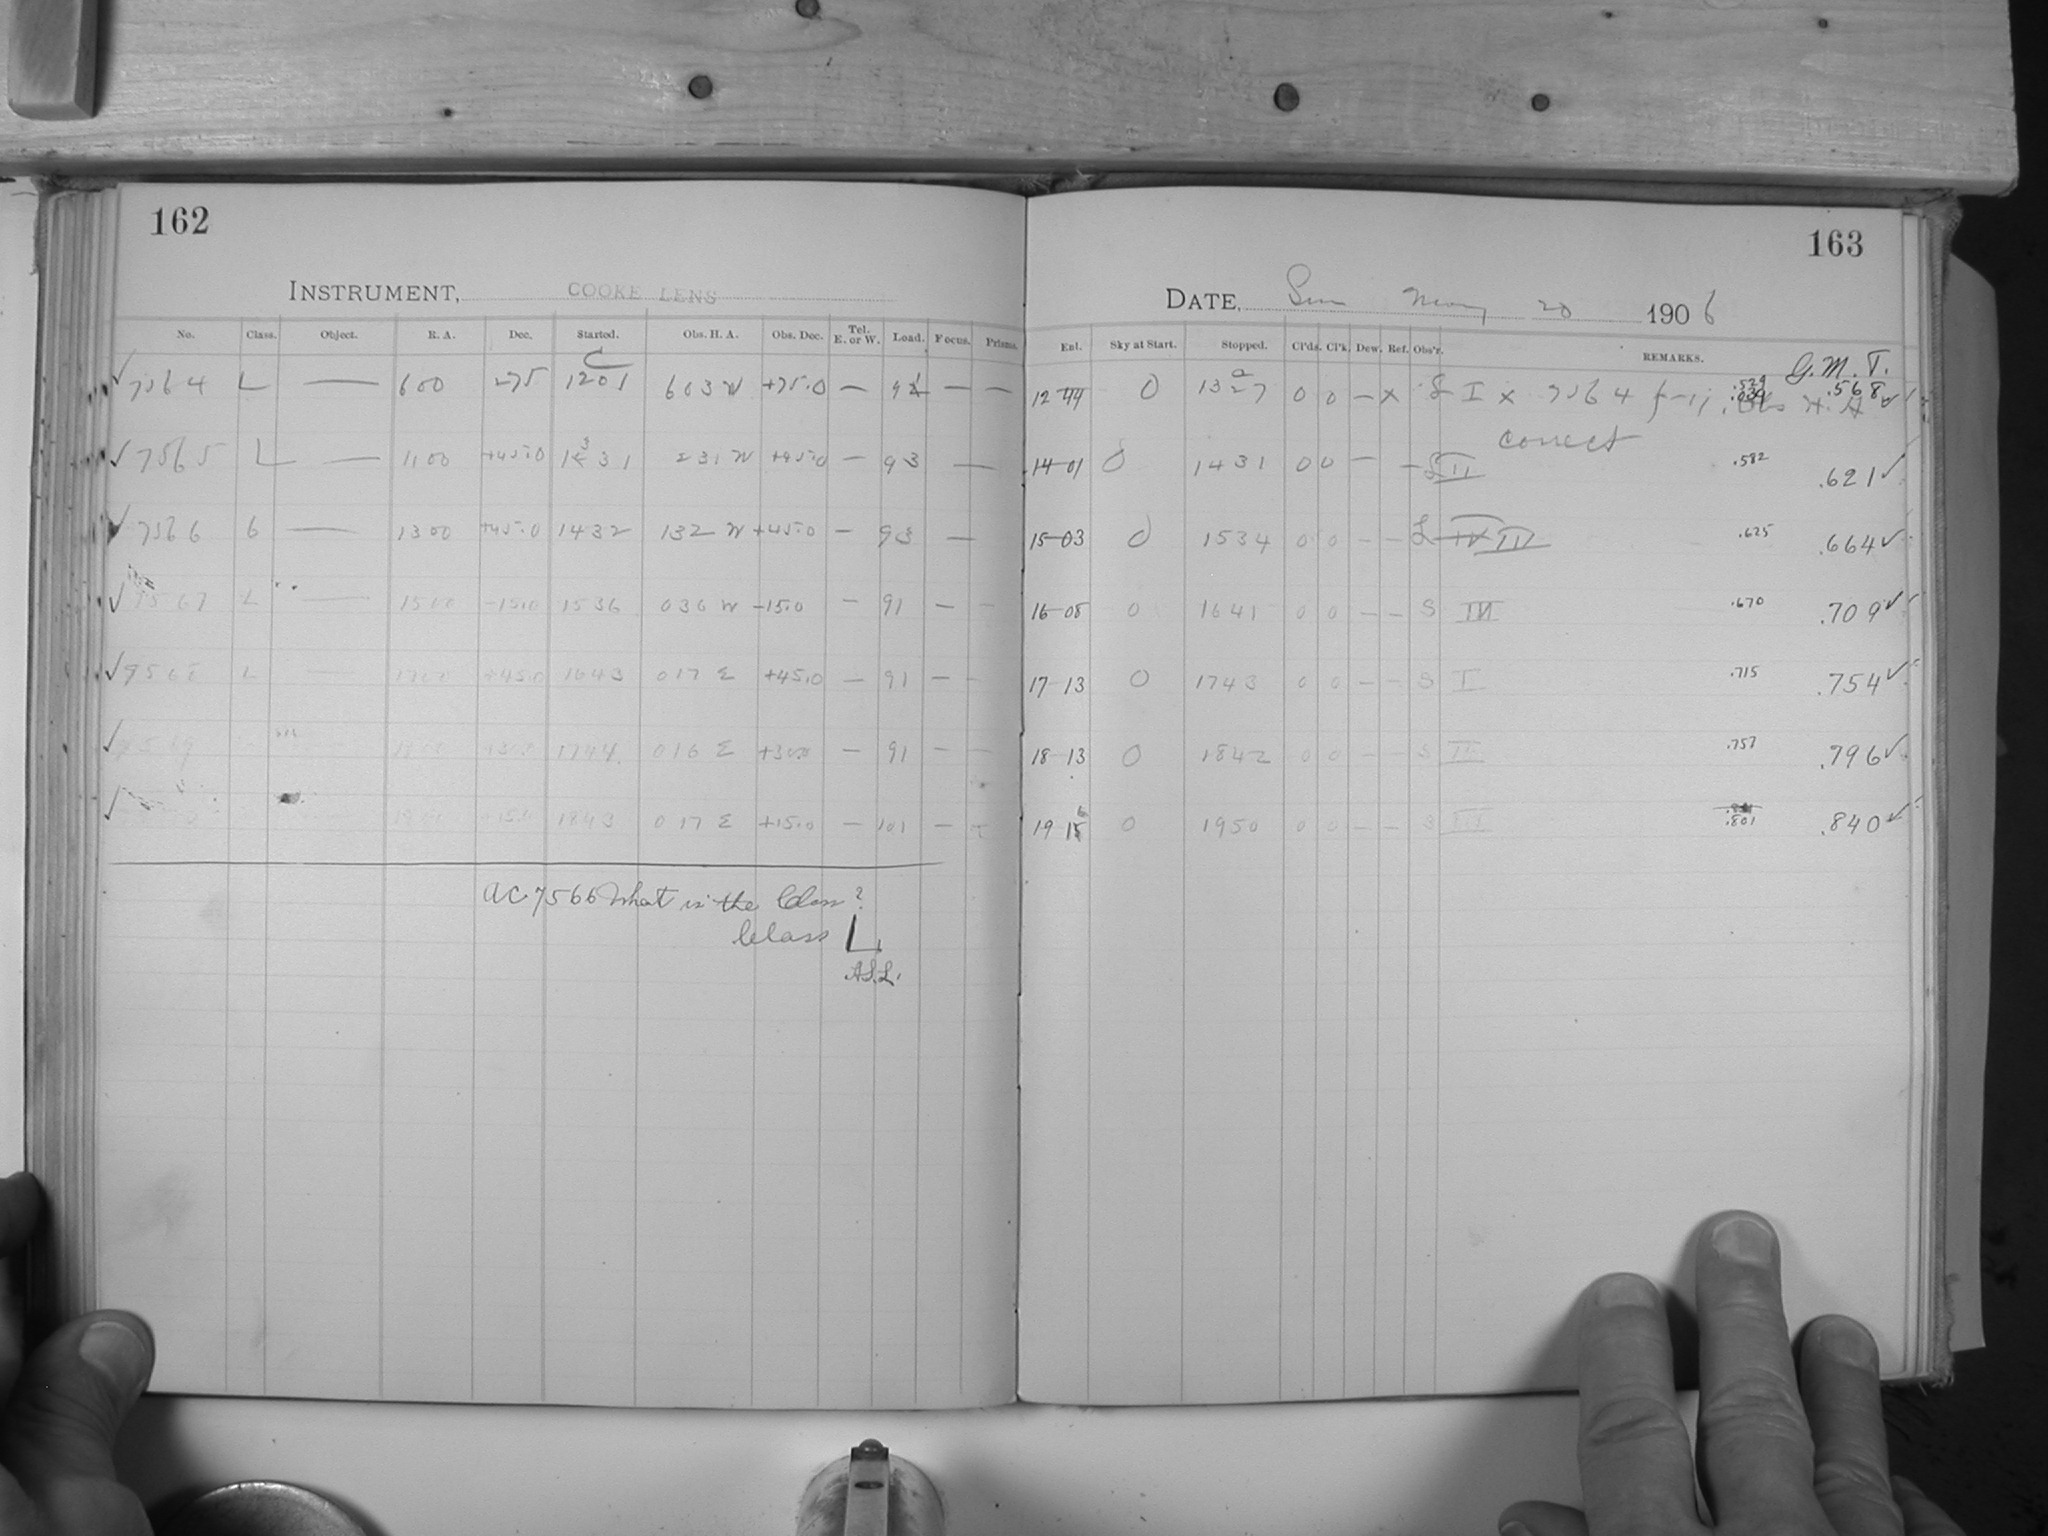 162
INSTRUMENT, COOKE LENS
No. Class. Object. R. A. Dec. Started. Obs. H. A. Obs. Dec. Tel. E. or W. Load. Focus. Prisms.
7564 L — 600 -75 1201 603 W +75.0 — — —
7565 L — 1100 +45.0 1331 231 W +45.0 — 93 —
7566 6 — 1300 +45.0 1432 132 W +45.0 — 93 —
7567 L — 1500 -15.0 1536 036 W -15.0 — 91 — —
7568 L — 1700 +45.0 1643 017 E +45.0 — 91 — —
1744 016 E +30.0 — 91 — —
+15.0 1843 017 E +15.0 — 101 —
AC 7566 What is the Class?
Class L
A.S.L.
163
DATE, Sun May 20 1906
Ent. Sky at Start. Stopped. Cl'ds. Cl'k. Dew. Ref. Obs'r. REMARKS.
G. M. T.
12 44 0 1327 0 0 — x S I x 7564 Obs H. A .529 .568
correct
14-01 0 1431 0 0 — — S II .582 .621
15-03 0 1534 0 0 — — L IV .625 .664
16-08 0 1641 0 0 — — S III .670 .709
17-13 0 1743 0 0 — — S I .715 .754
18-13 0 1842 0 0 — — S .757 .796
19 16 0 1950 0 0 — — S III .801 .840